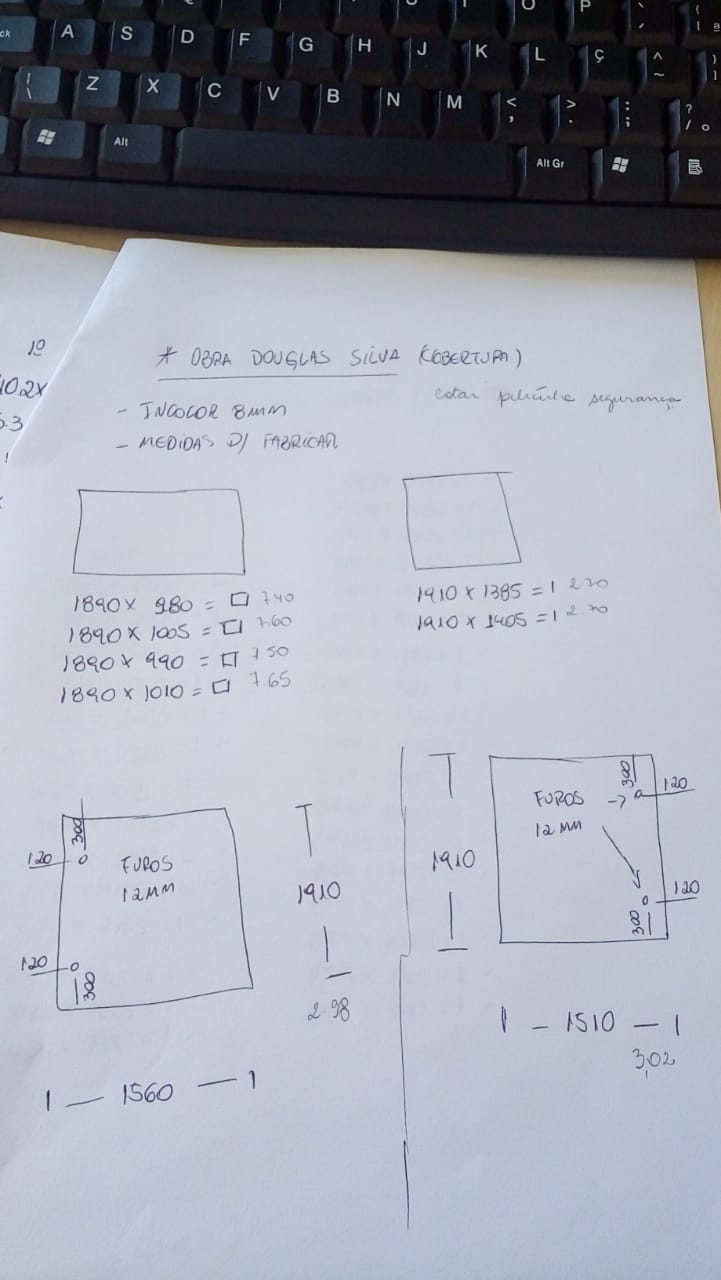 O P
ck A S D F G H J K L Ç ^ ~
\ | Z X C V B N M < , > . : ; ? / °
Alt Alt Gr
1º
102X
5.3
* OBRA DOUGLAS SILVA (COBERTURA)
cotar película segurança
- INCOLOR 8MM
- MEDIDAS P/ FABRICAR
1890 X 980 = 7.40
1890 X 1005 = 7.60
1890 X 990 = 7.50
1890 X 1010 = 7.65
1910 X 1385 = 1 2.70
1910 X 1405 = 1 2.70
300
120
FUROS
12MM
120
300
1910
2.98
1560
300
120
FUROS ->
12 MM
120
300
1910
1510
3,02